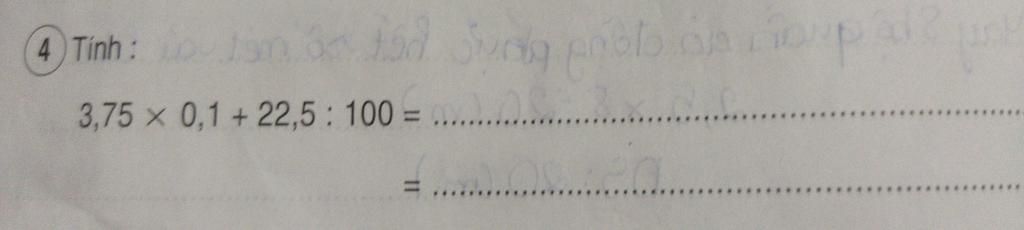 4 Tính :
3,75 × 0,1 + 22,5 : 100 = ........................................
= ........................................